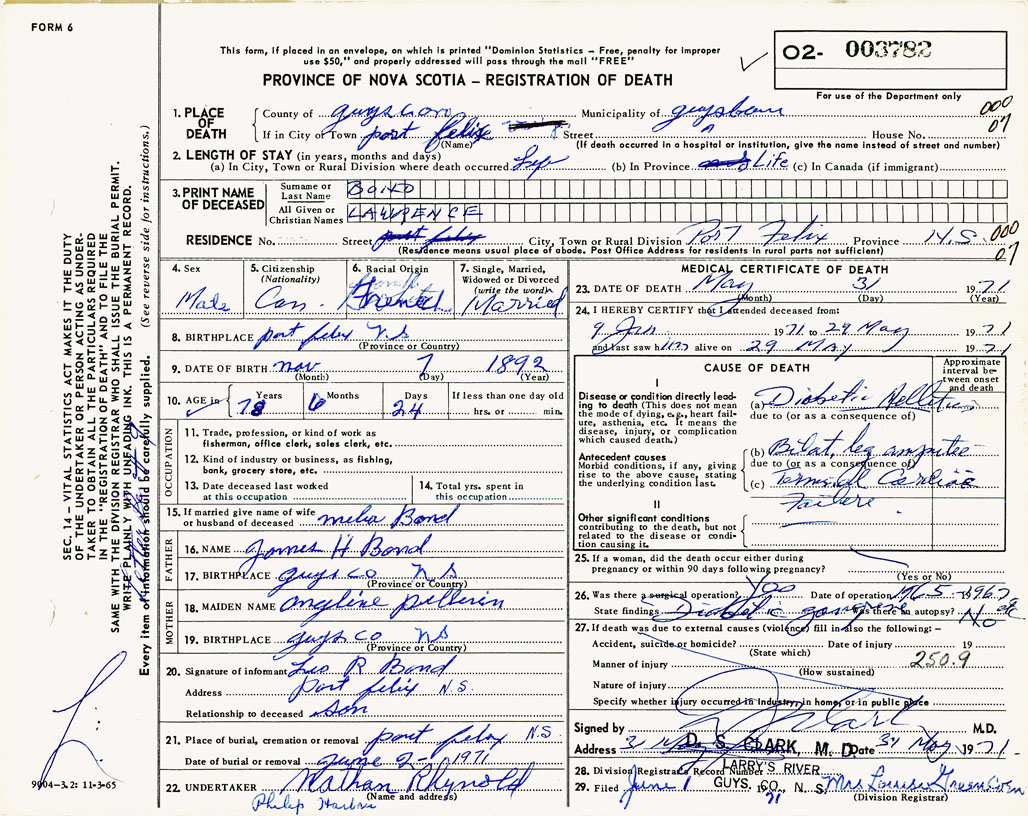 FORM 6
This form, if placed in an envelope, on which is printed "Dominion Statistics – Free, penalty for improper
use $50," and properly addressed will pass through the mail "FREE"
PROVINCE OF NOVA SCOTIA – REGISTRATION OF DEATH
O2- 003782
For use of the Department only
000
07
SEC. 14 – VITAL STATISTICS ACT MAKES IT THE DUTY
OF THE UNDERTAKER OR PERSON ACTING AS UNDER-
TAKER TO OBTAIN ALL THE PARTICULARS REQUIRED
IN THE "REGISTRATION OF DEATH" AND TO FILE THE
SAME WITH THE DIVISION REGISTRAR WHO SHALL ISSUE THE BURIAL PERMIT.
WRITE PLAINLY WITH UNFADING INK. THIS IS A PERMANENT RECORD.
Every item of information should be carefully supplied. (See reverse side for instructions.)
1. PLACE OF DEATH
County of guys con Municipality of
If in City or Town port felix Street House No.
(Name) (If death occurred in a hospital or institution, give the name instead of street and number)
2. LENGTH OF STAY (in years, months and days)
(a) In City, Town or Rural Division where death occurred (b) In Province Life (c) In Canada (if immigrant)
3. PRINT NAME OF DECEASED
Surname or Last Name BOND
All Given or Christian Names LAWRENCE
RESIDENCE No. Street port felix City, Town or Rural Division Port Felix Province N.S. 000
07
(Residence means usual place of abode. Post Office Address for residents in rural parts not sufficient)
4. Sex
Male
5. Citizenship
(Nationality)
Can.
6. Racial Origin
French
7. Single, Married,
Widowed or Divorced
(write the word)
Married
8. BIRTHPLACE port felix N S
(Province or Country)
9. DATE OF BIRTH nov 7 1892
(Month) (Day) (Year)
10. AGE in Years 78 Months 6 Days 24 If less than one day old
hrs. or min.
OCCUPATION
11. Trade, profession, or kind of work as
fisherman, office clerk, sales clerk, etc.
12. Kind of industry or business, as fishing,
bank, grocery store, etc.
13. Date deceased last worked
at this occupation
14. Total yrs. spent in
this occupation
15. If married give name of wife
or husband of deceased Bond
FATHER
16. NAME James H Bond
17. BIRTHPLACE guys co N S
(Province or Country)
MOTHER
18. MAIDEN NAME angline pellerin
19. BIRTHPLACE guys co N S
(Province or Country)
20. Signature of informant Leo R Bond
Address port felix N.S.
Relationship to deceased son
21. Place of burial, cremation or removal port felix N.S.
Date of burial or removal June 2 - 1971
22. UNDERTAKER Nathan Rhynold
(Name and address)
Philip
9004–3.2: 11-3-65
MEDICAL CERTIFICATE OF DEATH
23. DATE OF DEATH May 31 1971
(Month) (Day) (Year)
24. I HEREBY CERTIFY that I attended deceased from:
9 Jan 1971 to 29 May 1971
and last saw him alive on 29 MAY 1971
CAUSE OF DEATH
Approximate
interval be-
tween onset
and death
I
Disease or condition directly lead-
ing to death (This does not mean
the mode of dying, e.g., heart fail-
ure, asthenia, etc. It means the
disease, injury, or complication
which caused death.)
(a) Diabetic Mellitus
due to (or as a consequence of)
Antecedent causes
Morbid conditions, if any, giving
rise to the above cause, stating
the underlying condition last.
(b) Bilat. leg amputee
due to (or as a consequence of)
(c) Terminal Cardiac
Failure
II
Other significant conditions
contributing to the death, but not
related to the disease or condi-
tion causing it.
25. If a woman, did the death occur either during
pregnancy or within 90 days following pregnancy?
(Yes or No)
26. Was there a surgical operation? Yes Date of operation 1965 1967
State findings Diabetic gangrene Was there an autopsy? No
27. If death was due to external causes (violence) fill in also the following: –
Accident, suicide or homicide? Date of injury 19
(State which)
Manner of injury 250.9
(How sustained)
Nature of injury
Specify whether injury occurred in industry, in home, or in public place
Signed by M.D.
Address D. S. CLARK, M. D. Date 31 May 1971
LARRY'S RIVER
GUYS. CO., N. S.
28. Division Registrar's Record Number
29. Filed June 1 1971 Mrs Louise Greencorn
(Division Registrar)